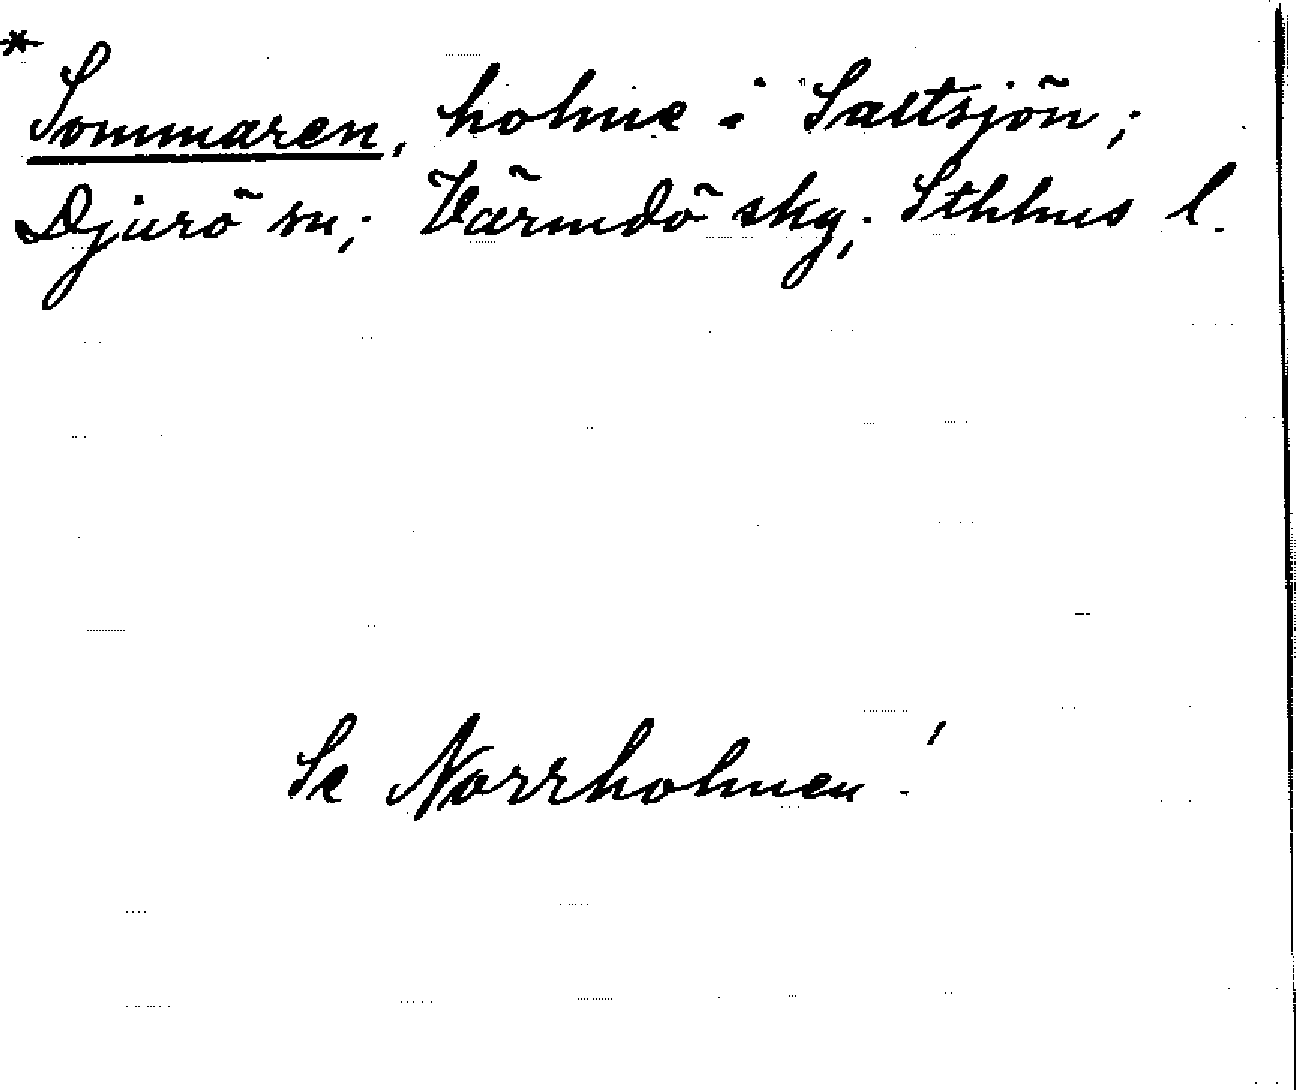 * Sommaren, holme i Saltsjön;
Djurö sn; Värmdö skg; Sthlms l.
Se Norrholmen!